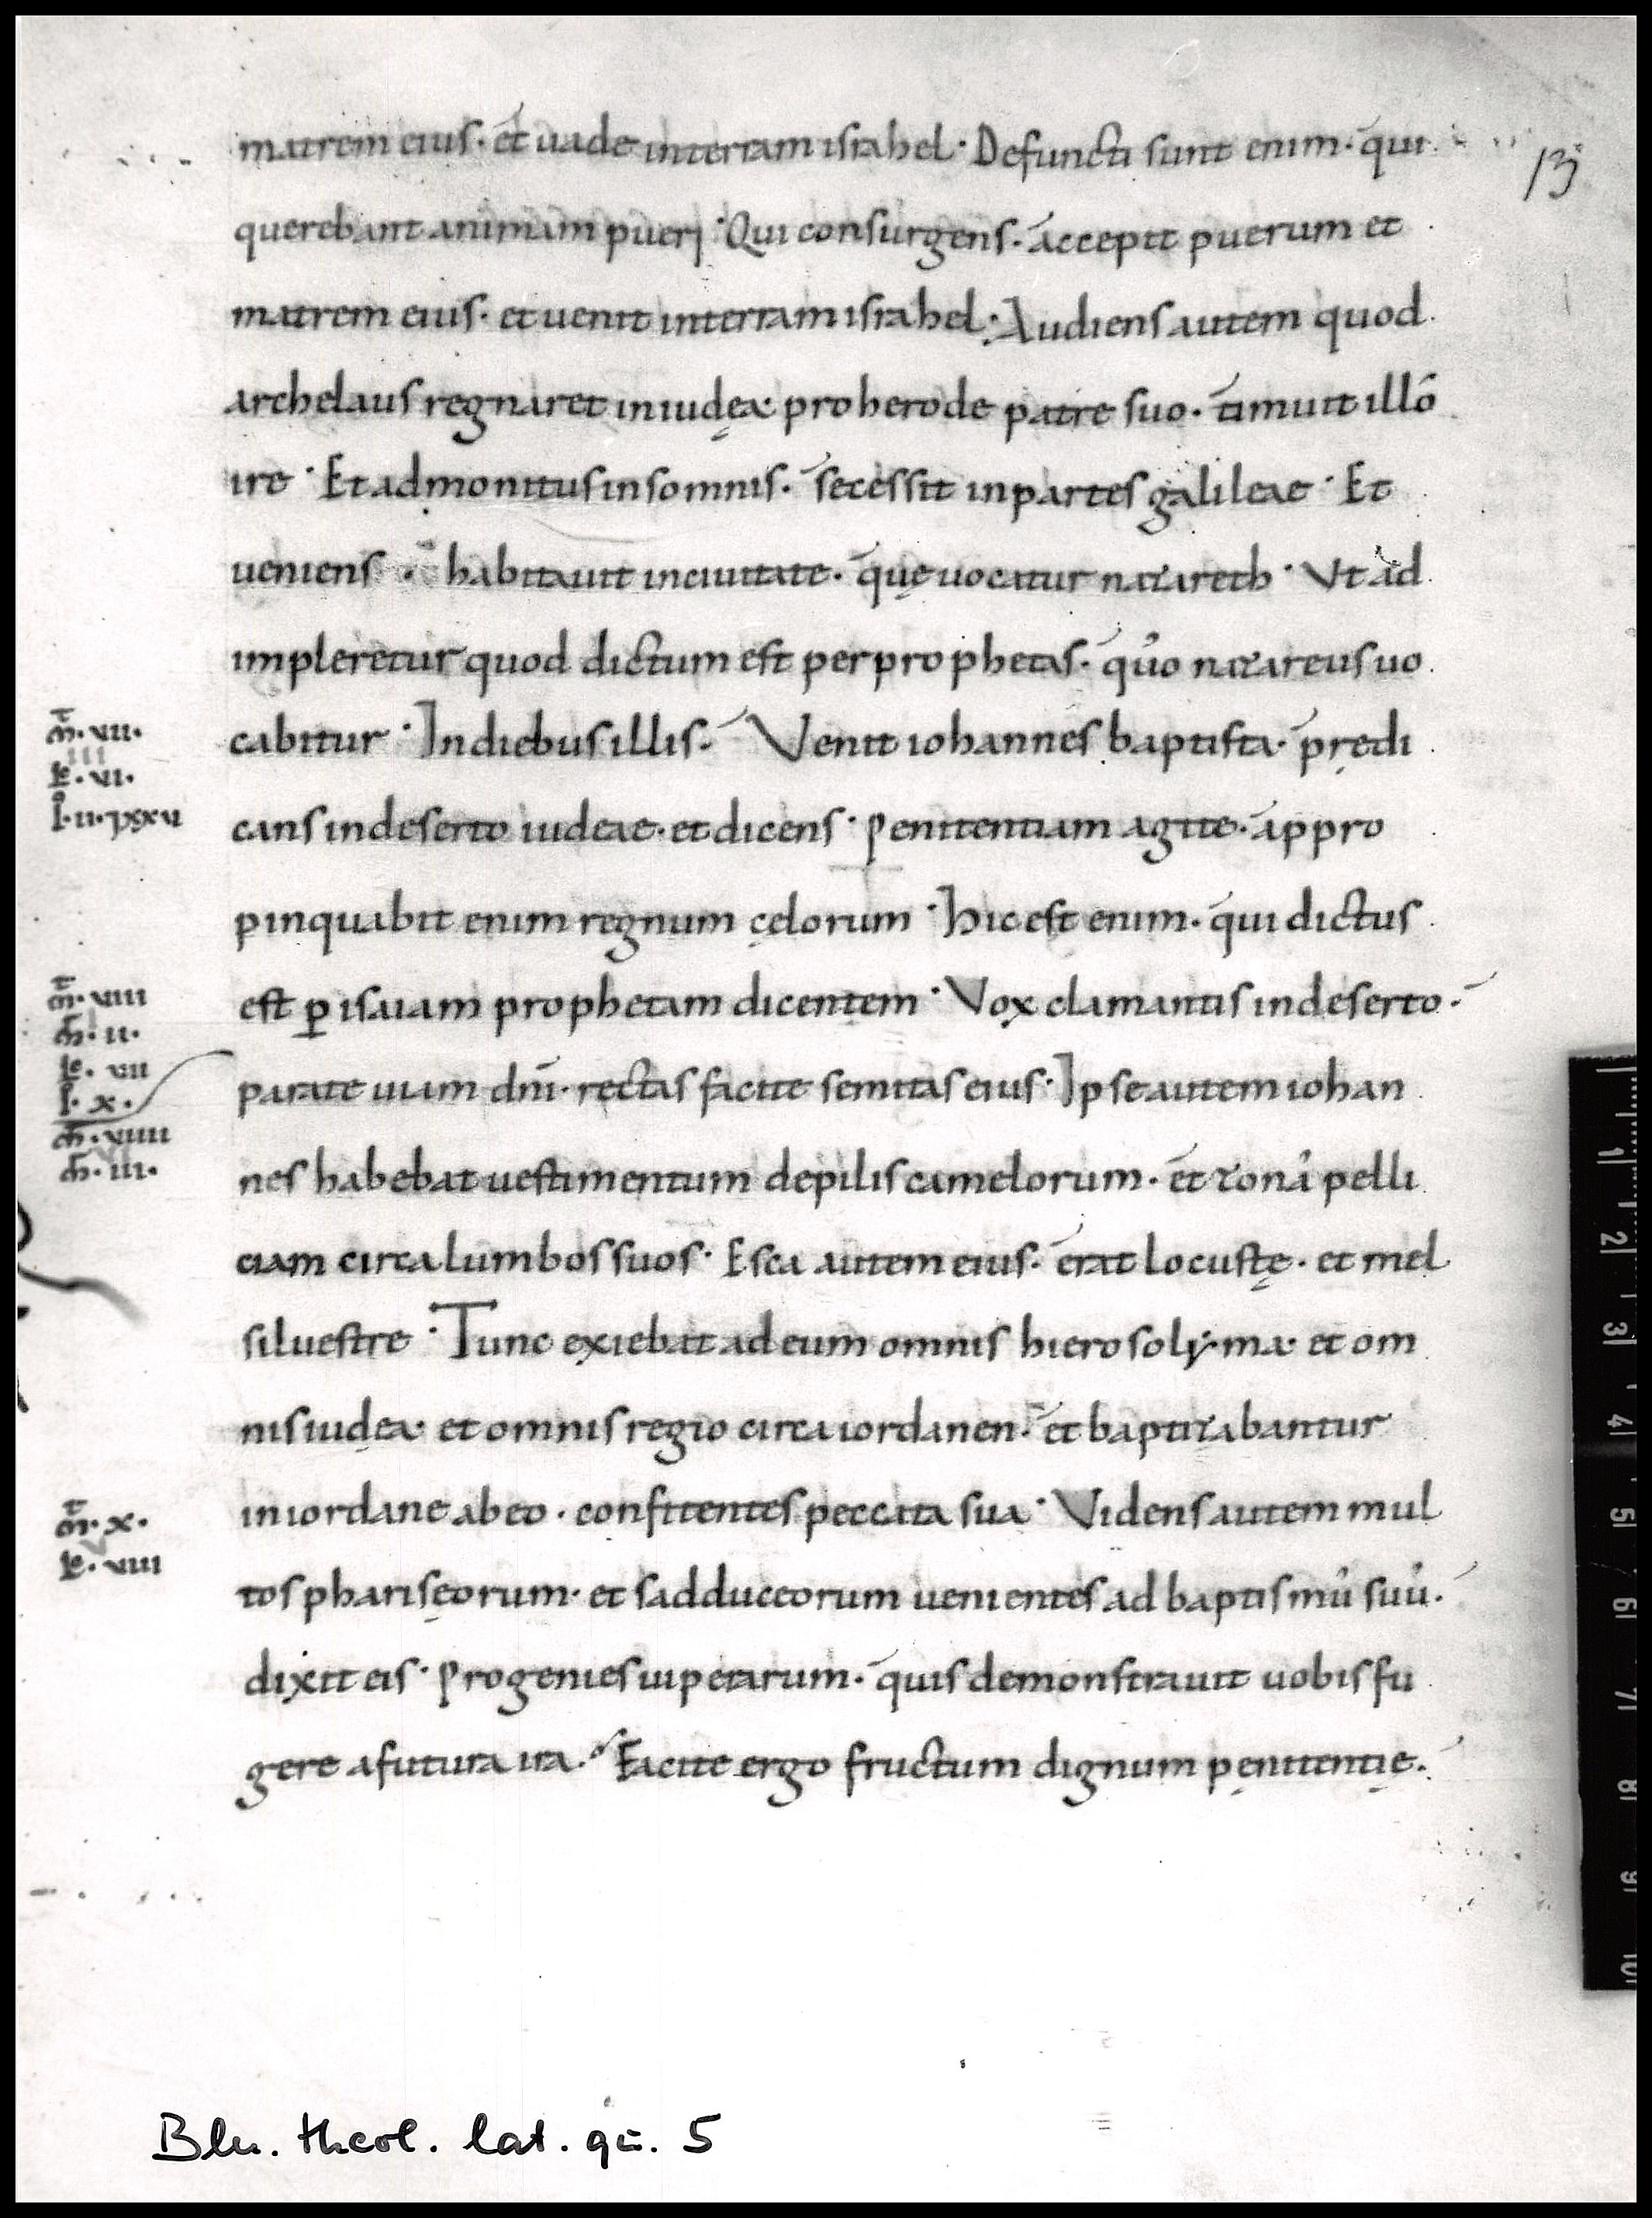 13
matrem eius· et uade interram israhel· Defuncti sunt enim· qui
querebant animam pueri· Qui consurgens· accepit puerum et
matrem eius· et uenit interram israhel· Audiens autem quod
archelaus regnaret in iudęa· pro herode patre suo· timuit illo
ire· Et admonitus in somnis· secessit in partes galileae· Et
ueniens· habitauit in ciuitate· quę uocatur nazareth· Vt ad
impleretur quod dictum est per prophetas· quo nazareus uo
m̄·vii·
III
le·vi·
cabitur· In diebus illis· Venit iohannes baptista· prędi
cans in deserto iudeae· et dicens· Penitentiam agite· appro
pinquabit enim regnum cęlorum· Hic est enim· qui dictus
m̄·viii
m̄·ii·
le·vii
i·x·
m̄·viiii
m̄·iii·
est ꝑ isaiam prophetam dicentem· Vox clamantis in deserto·
parate uiam dn̄i· rectas facite semitas eius· Ipse autem iohan
nes habebat uestimentum de pilis camelorum· et zonā pelli
ciam circa lumbos suos· Esca autem eius· erat locustę· et mel
siluestre· Tunc exiebat ad eum omnis hierosolẏma· et om
nis iudęa· et omnis regio circa iordanen· et baptizabantur
m̄·x·
V
le·viii
in iordane ab eo· confitentes peccata sua· Videns autem mul
tos pharisęorum· et sadduceorum uenientes ad baptismū suū·
dixit eis· Progenies uiperarum· quis demonstrauit uobis fu
gere a futura ira· Facite ergo fructum dignum pęnitentię·
Bln. theol. lat. qu. 5
1 2 3 4 5 6 7 8 9 10